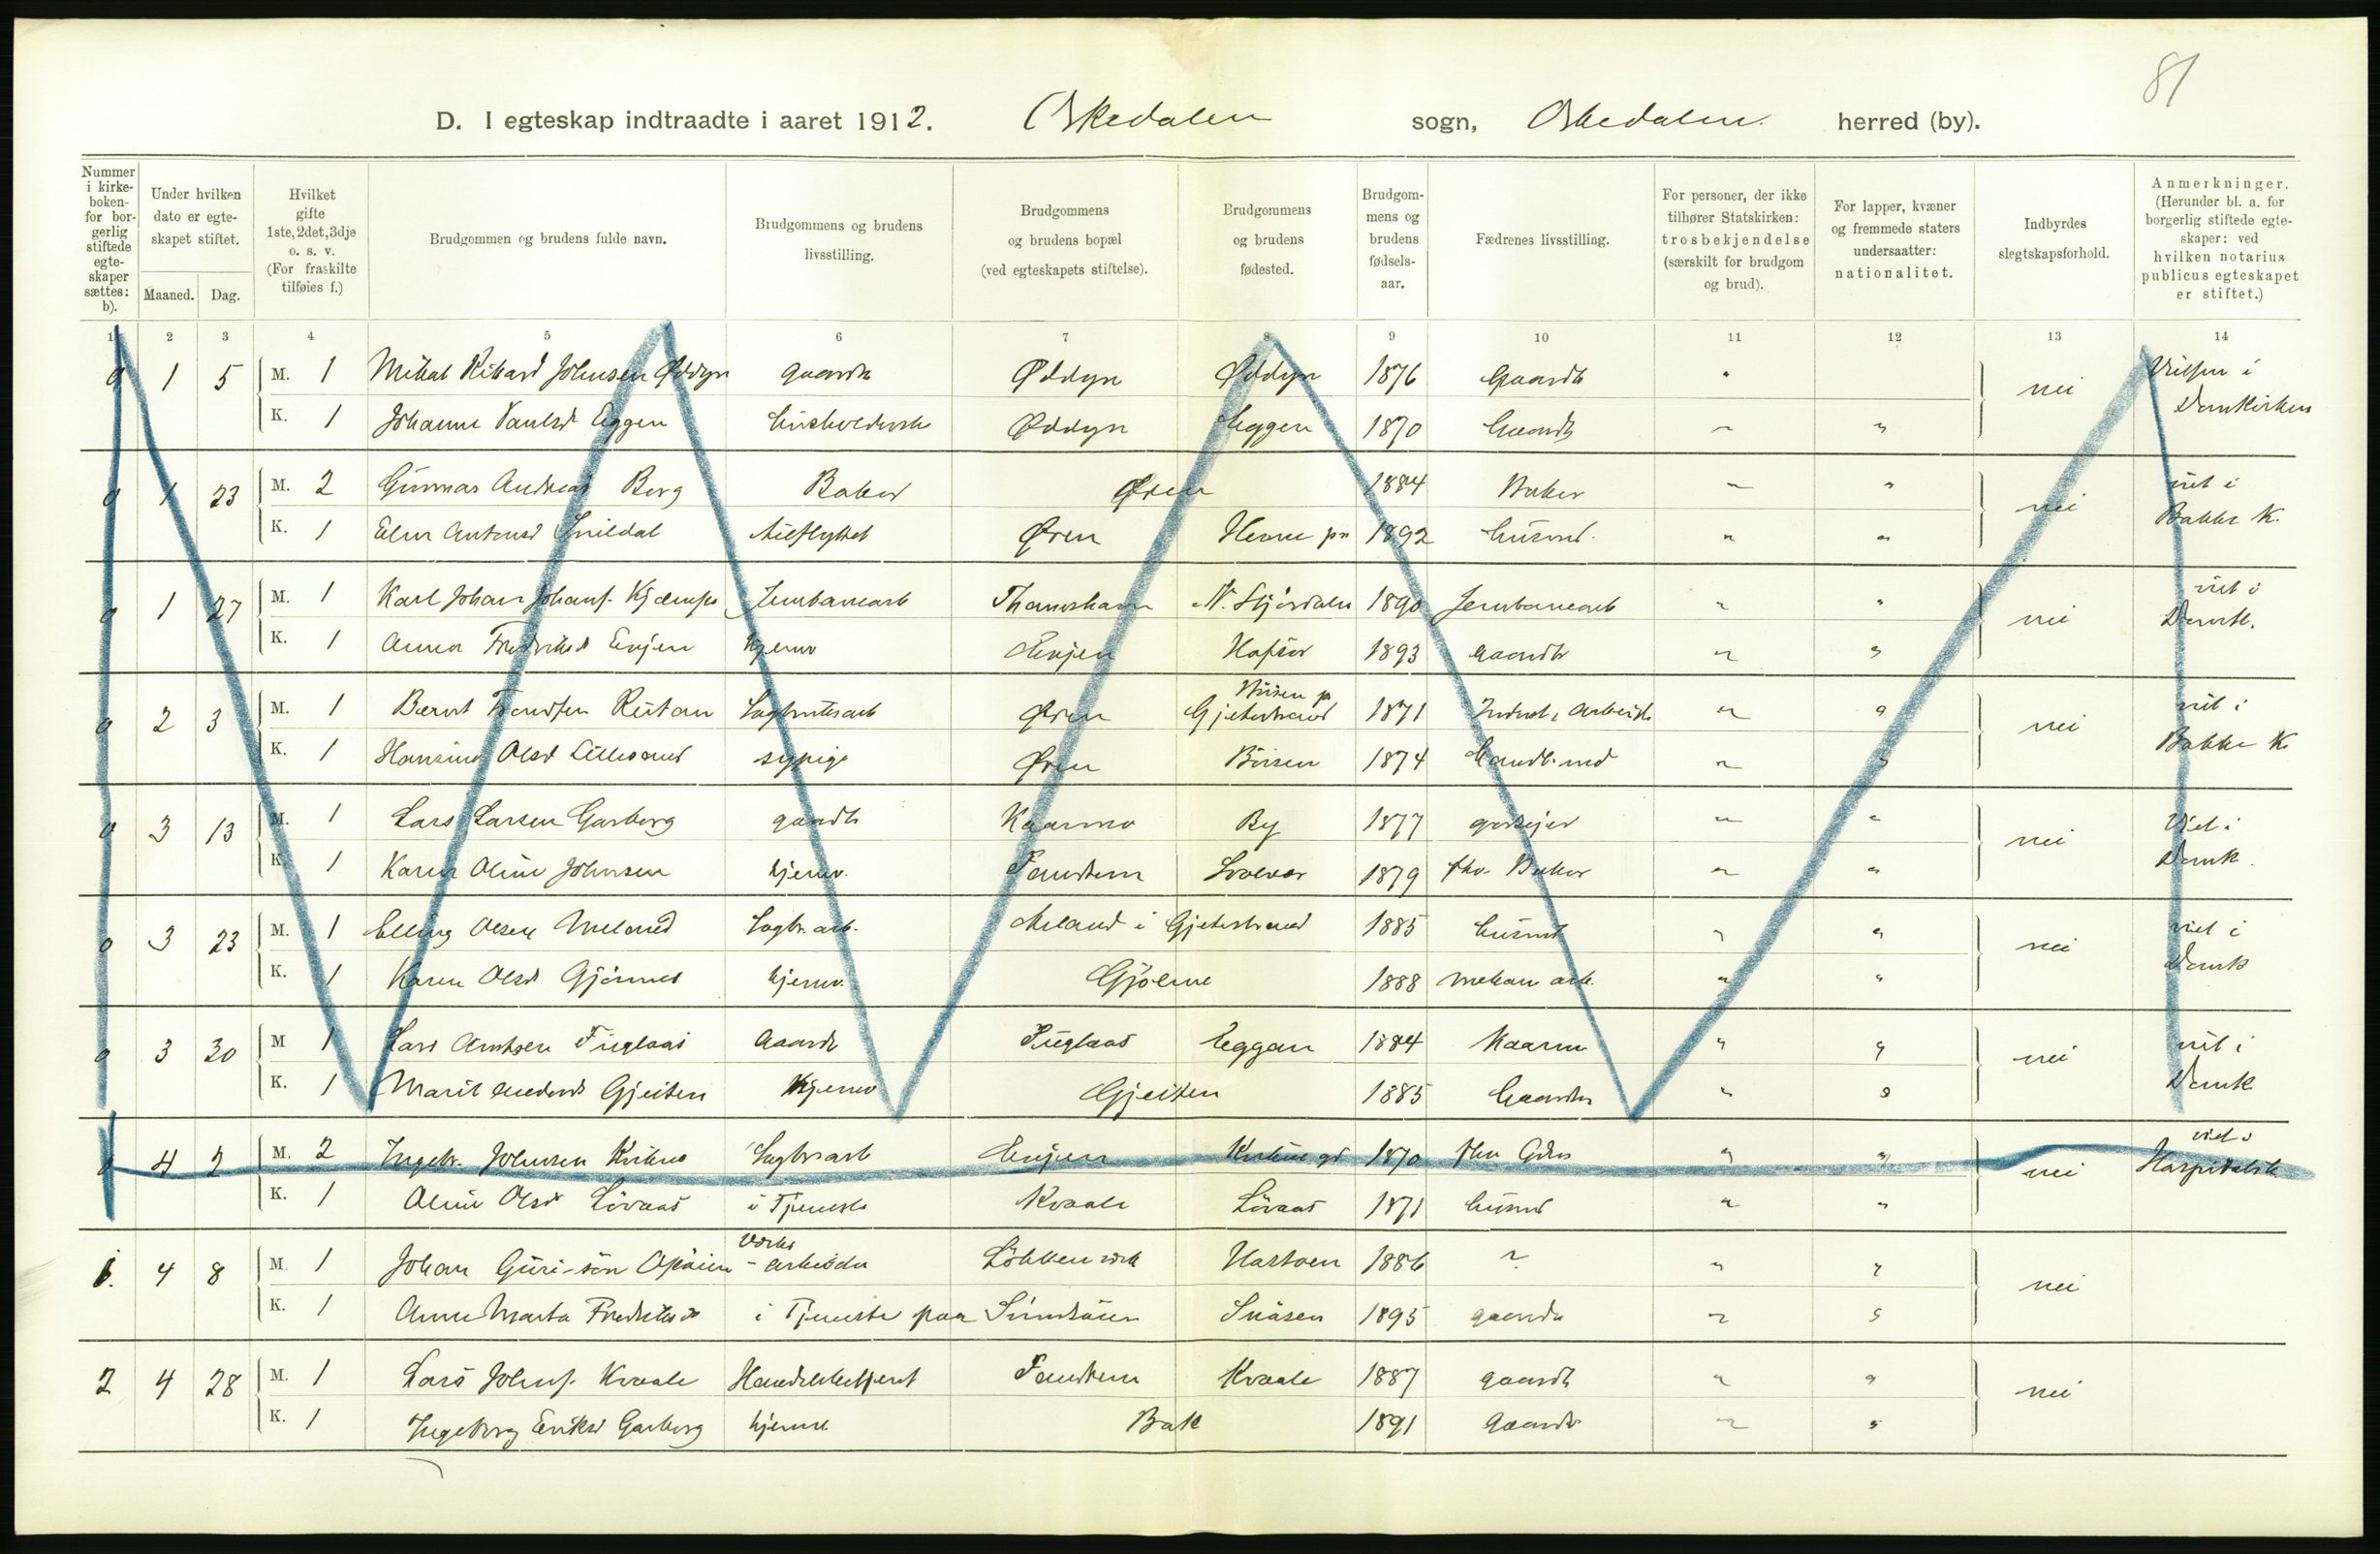 81
D. I egteskap indtraadte i aaret 1912. Orkedalen sogn, Orkedalen herred (by).
Nummer i kirke-boken- for bor-gerlig stiftede egte-skaper sættes: b).
Under hvilken dato er egte-skapet stiftet.
Maaned. Dag.
Hvilket gifte 1ste, 2det, 3dje o. s. v. (For fraskilte tilføies f.)
Brudgommen og brudens fulde navn.
Brudgommens og brudens livsstilling.
Brudgommens og brudens bopæl (ved egteskapets stiftelse).
Brudgommens og brudens fødested.
Brudgom-mens og brudens fødsels-aar.
Fædrenes livsstilling.
For personer, der ikke tilhører Statskirken: trosbekjendelse (særskilt for brudgom og brud).
For lapper, kvæner og fremmede staters undersaatter: nationalitet.
Indbyrdes slegtskapsforhold.
Anmerkninger. (Herunder bl. a. for borgerlig stiftede egte-skaper: ved hvilken notarius publicus egteskapet er stiftet.)
1 2 3 4 5 6 7 8 9 10 11 12 13 14
0 1 5 M. 1 Mikal Rikard Johnsen Øddyn gaardb Øddyn Øddyn 1876 Gaardb " nei i Domkirken
K. 1 Johanna Eggen Øddyn Eggen 1870 Gaardb " "
0 1 23 M. 2 Gunnar Andreas Berg Baker Øren 1884 Baker " " nei viet i Bakke K.
K. 1 Snildal Øren Hevne 1892 Husmd. " "
0 1 27 M. 1 Karl Johan Johans. Jernbanearb Thamshavn N. Stjørdalen 1890 Jernbanearb " " nei viet i Domk.
K. 1 Anna Evjen hjemv Evjen 1893 Gaardb " "
0 2 3 M. 1 Bernt Rutan Sagbruksarb Øren Børsen Gjeterstrand 1871 Arbeid " " nei viet i Bakke K
K. 1 Olsd sypige Øren Børsen 1874 " "
0 3 13 M. 1 Lars Larsen Garberg gaardb By 1877 gardejer " " nei Viet i Domk.
K. 1 Karen Oline Johnsen hjemv. Fandrem 1879 fhv. Baker " "
0 3 23 M. 1 Elling Olsen Meland Sagbr. arb. Meland i Gjeterstrand 1885 husmd " " nei viet i Domk
K. 1 Karen Olsd hjemv. Gjölme 1888 mekan arb. " "
0 3 30 M 1 Lars Arntsen Fuglaas Gaardb Fuglaas Eggan 1884 " " nei viet i Domk
K. 1 Marit Gjeiten hjemv Gjeiten 1885 Gaardb " "
0 4 2 M. 2 Johnsen Sagbrarb Evjen 1870 " " nei viet i Hospitalsk
K. 1 Oline Olsd Lövaas i Tjeneste Kvaale Lövaas 1871 husmd " "
1. 4 8 M. 1 Johan Verks - arbeider Lökken verk 1886 ? " " nei
K. 1 Anne Marta i Tjeneste paa Snåsen 1895 gaardb " "
2 4 28 M. 1 Lars Johns. Kvaale Handelsbetjent Fandrem Kvaale 1887 gaardb " " nei
K. 1 Ingeborg Eriksd Garberg hjemv. Bak 1891 Gaardb " "